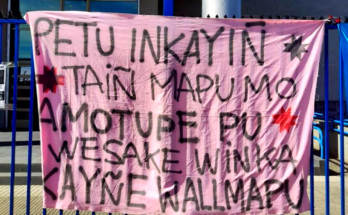 PETU INKAYIÑ
TAIÑ MAPU MO
AMOTUPE PU
WESAKE WINKA
KAYÑE WALLMAPU